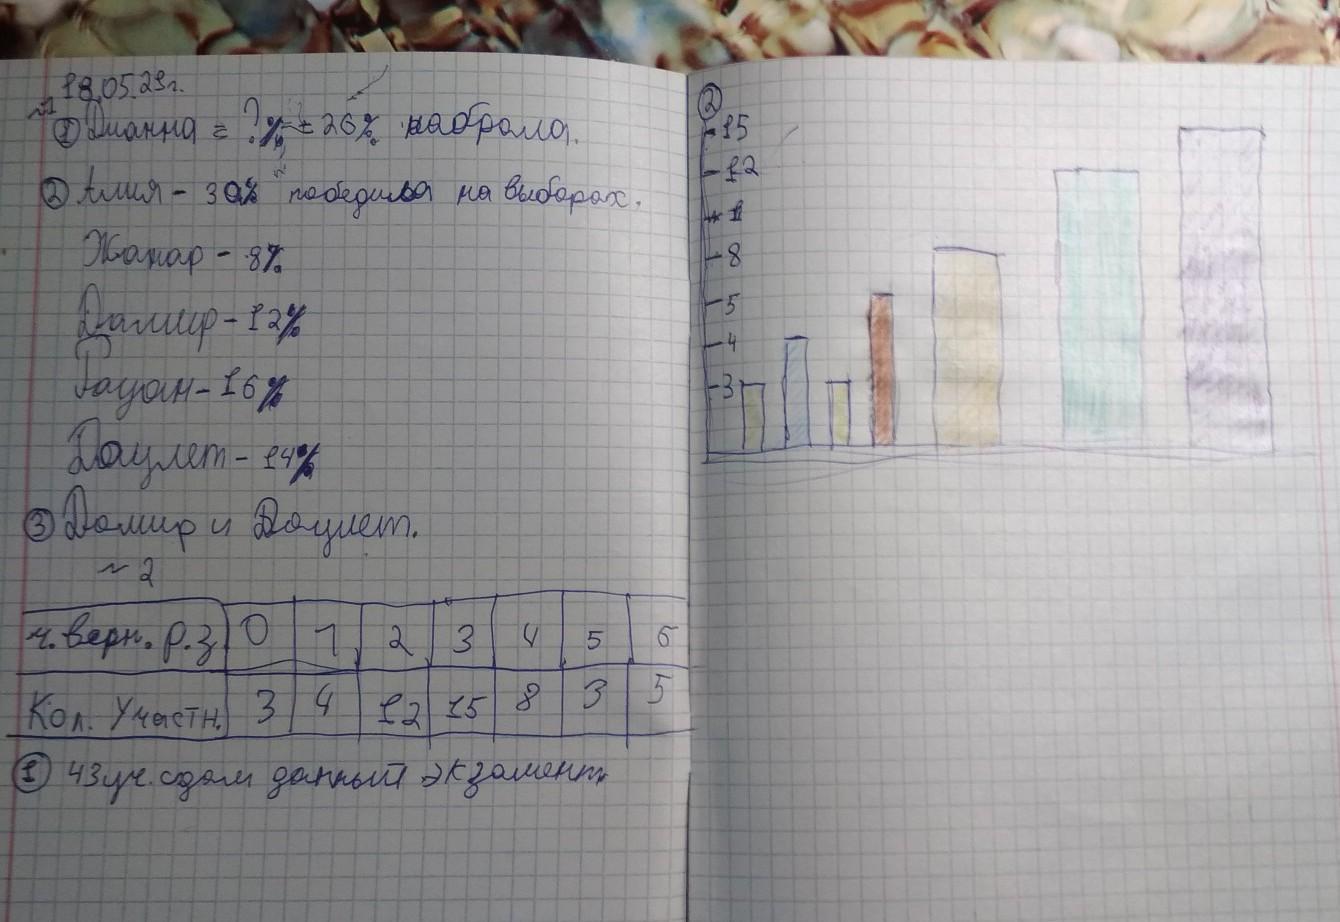 18.05.23г.
№1
① Дианна = ?% = 26% набрала.
② Алия - 30% победила на выборах.
Жанар - 8%
Дамир - 12%
Рауан - 16%
Даулет - 14%
③ Дамир и Даулет.
~ 2
ч. верн. р.з. 0 1 2 3 4 5 6
Кол. Участн. 3 4 12 15 8 3 5
① 43 уч. сдали данный экзамент
②
15
12
8
5
4
3